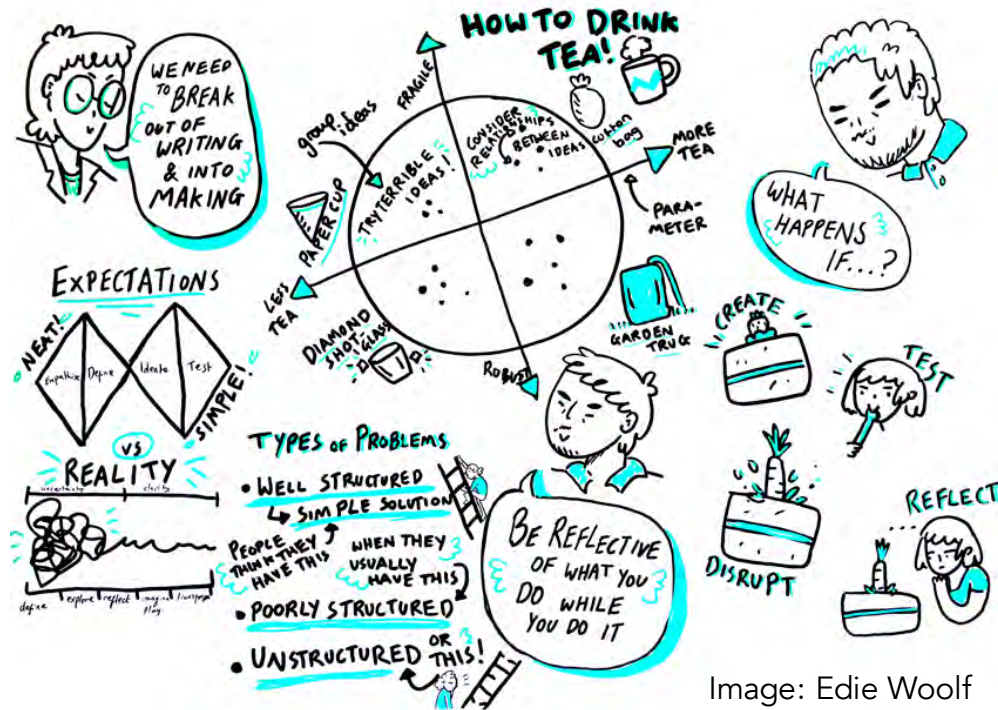 WE NEED
TO BREAK
OUT OF
WRITING
& INTO
MAKING
HOW TO DRINK
TEA!
FRAGILE
group ideas
TRY TERRIBLE
IDEAS!
CONSIDER
RELATIONSHIPS
BETWEEN
IDEAS
cotton
bag
MORE
TEA
PARA-
METER
PAPER CUP
LESS
TEA
DIAMOND
SHOT-
GLASS
GARDEN
TRUG
ROBUST
WHAT
HAPPENS
IF...?
EXPECTATIONS
NEAT!
Empathise
Define
Ideate
Test
SIMPLE!
VS
REALITY
uncertainty
clarity
define
explore
reflect
imagine
play
TYPES OF PROBLEMS
• WELL STRUCTURED
SIMPLE SOLUTION
PEOPLE
THINK THEY
HAVE THIS
WHEN THEY
USUALLY
HAVE THIS
• POORLY STRUCTURED
• UNSTRUCTURED
OR
THIS!
BE REFLECTIVE
OF WHAT YOU
DO WHILE
YOU DO IT
CREATE
TEST
DISRUPT
REFLECT
Image: Edie Woolf